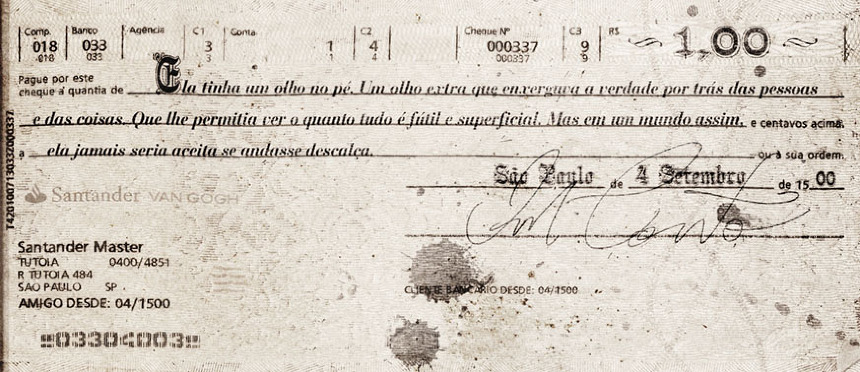 Comp. Banco Agência C1 Conta C2 Cheque Nº C3 R$
018 033 3 1 4 000337 9 1,00
018 033 3 1 4 000337 9
Pague por este
cheque a quantia de Ela tinha um olho no pé. Um olho extra que enxergava a verdade por trás das pessoas
e das coisas. Que lhe permitia ver o quanto tudo é fútil e superficial. Mas em um mundo assim, e centavos acima.
a ela jamais seria aceita se andasse descalça. ou à sua ordem.
São Paulo de 4 Setembro de 15 00
Santander VAN GOGH
Santander Master
TUTOIA 0400/4851
R TUTOIA 484
SAO PAULO SP
AMIGO DESDE: 04/1500
CLIENTE BANCÁRIO DESDE: 04/1500